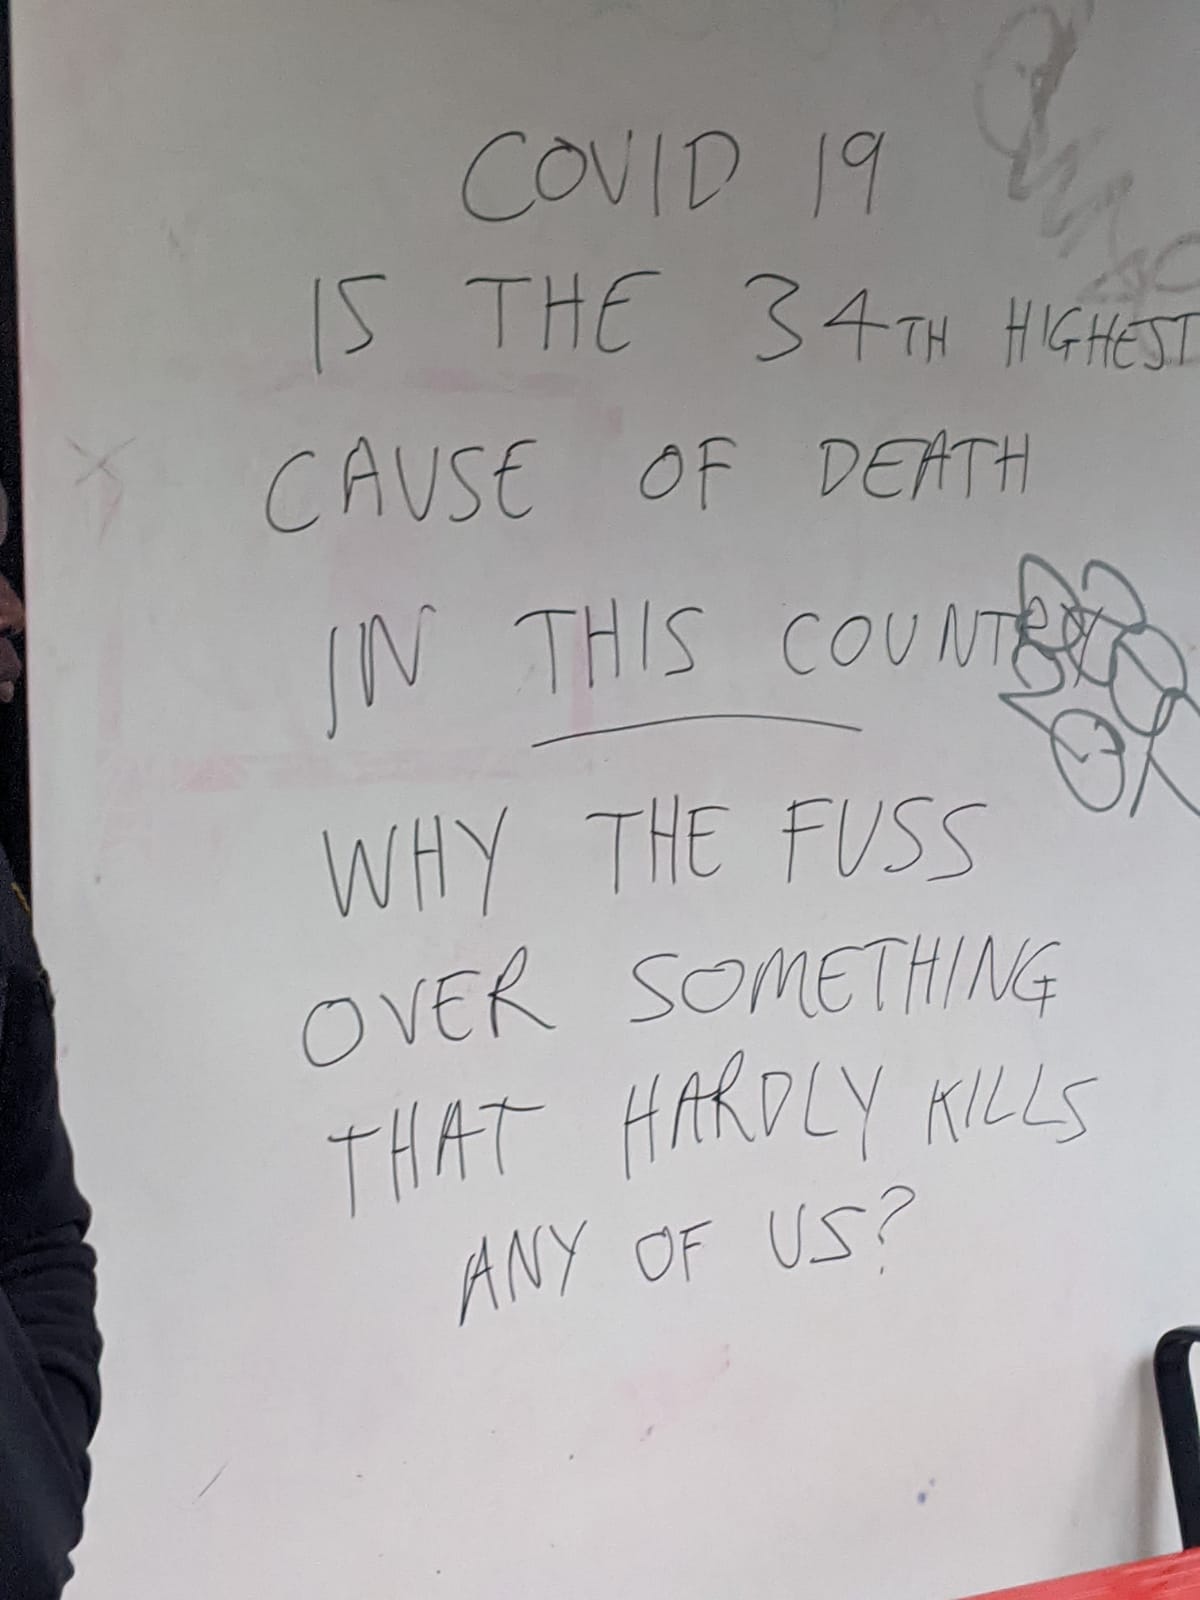 COVID 19
IS THE 34TH HIGHEST
CAUSE OF DEATH
IN THIS COUNTRY
WHY THE FUSS
OVER SOMETHING
THAT HARDLY KILLS
ANY OF US?